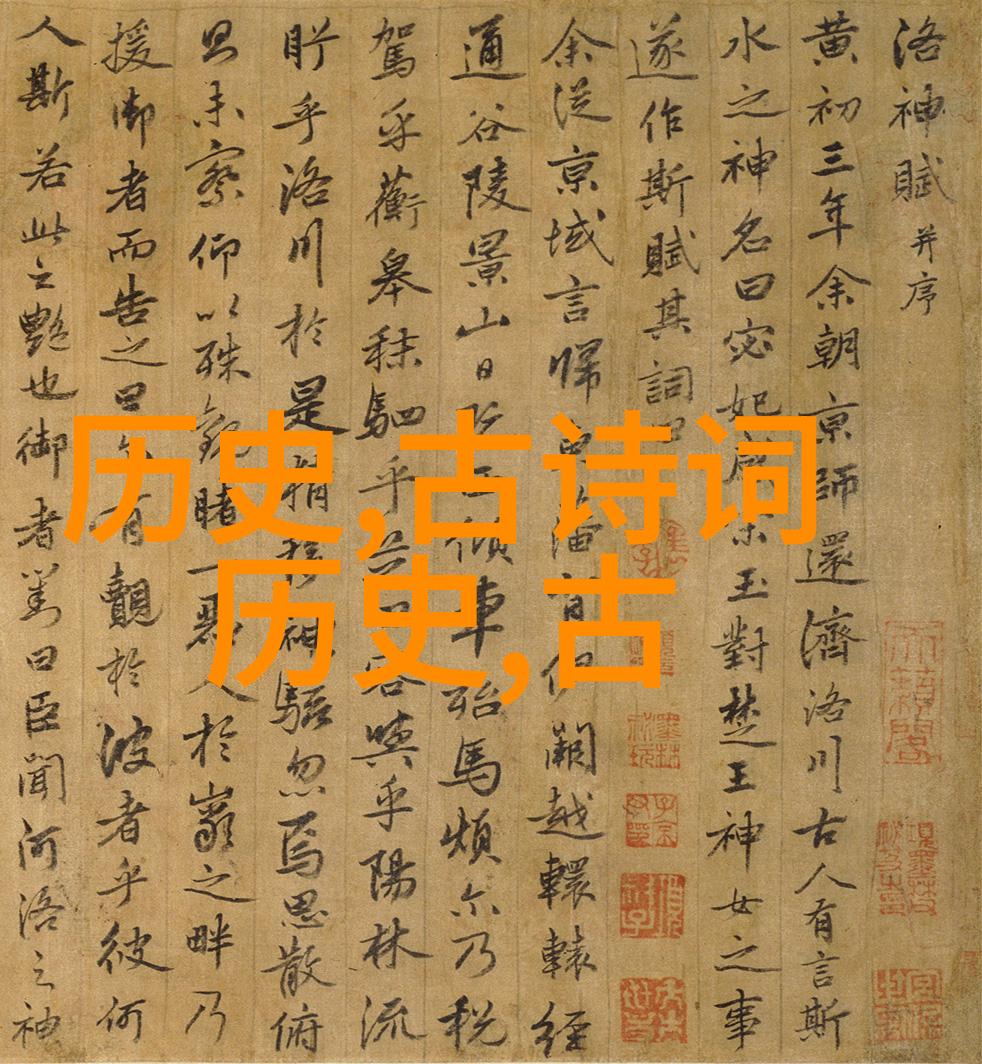 洛神賦并序
黄初三年余朝京師還濟洛川古人有言斯
水之神名曰宓妃感宋玉對楚王神女之事
遂作斯賦其詞曰
余從京域言歸東藩背伊闕越轘轅經
通谷陵景山日既西傾車殆馬煩尔乃税
駕乎蘅皋秣駟乎芝田容與乎陽林流
眄乎洛川於是精移神駭忽焉思散俯
則未察仰以殊觀睹一麗人於巖之畔乃
援御者而告之曰尔有覿於彼者乎彼何
人斯若此之艷也御者對曰臣聞河洛之神
历史,古诗词
历史,古